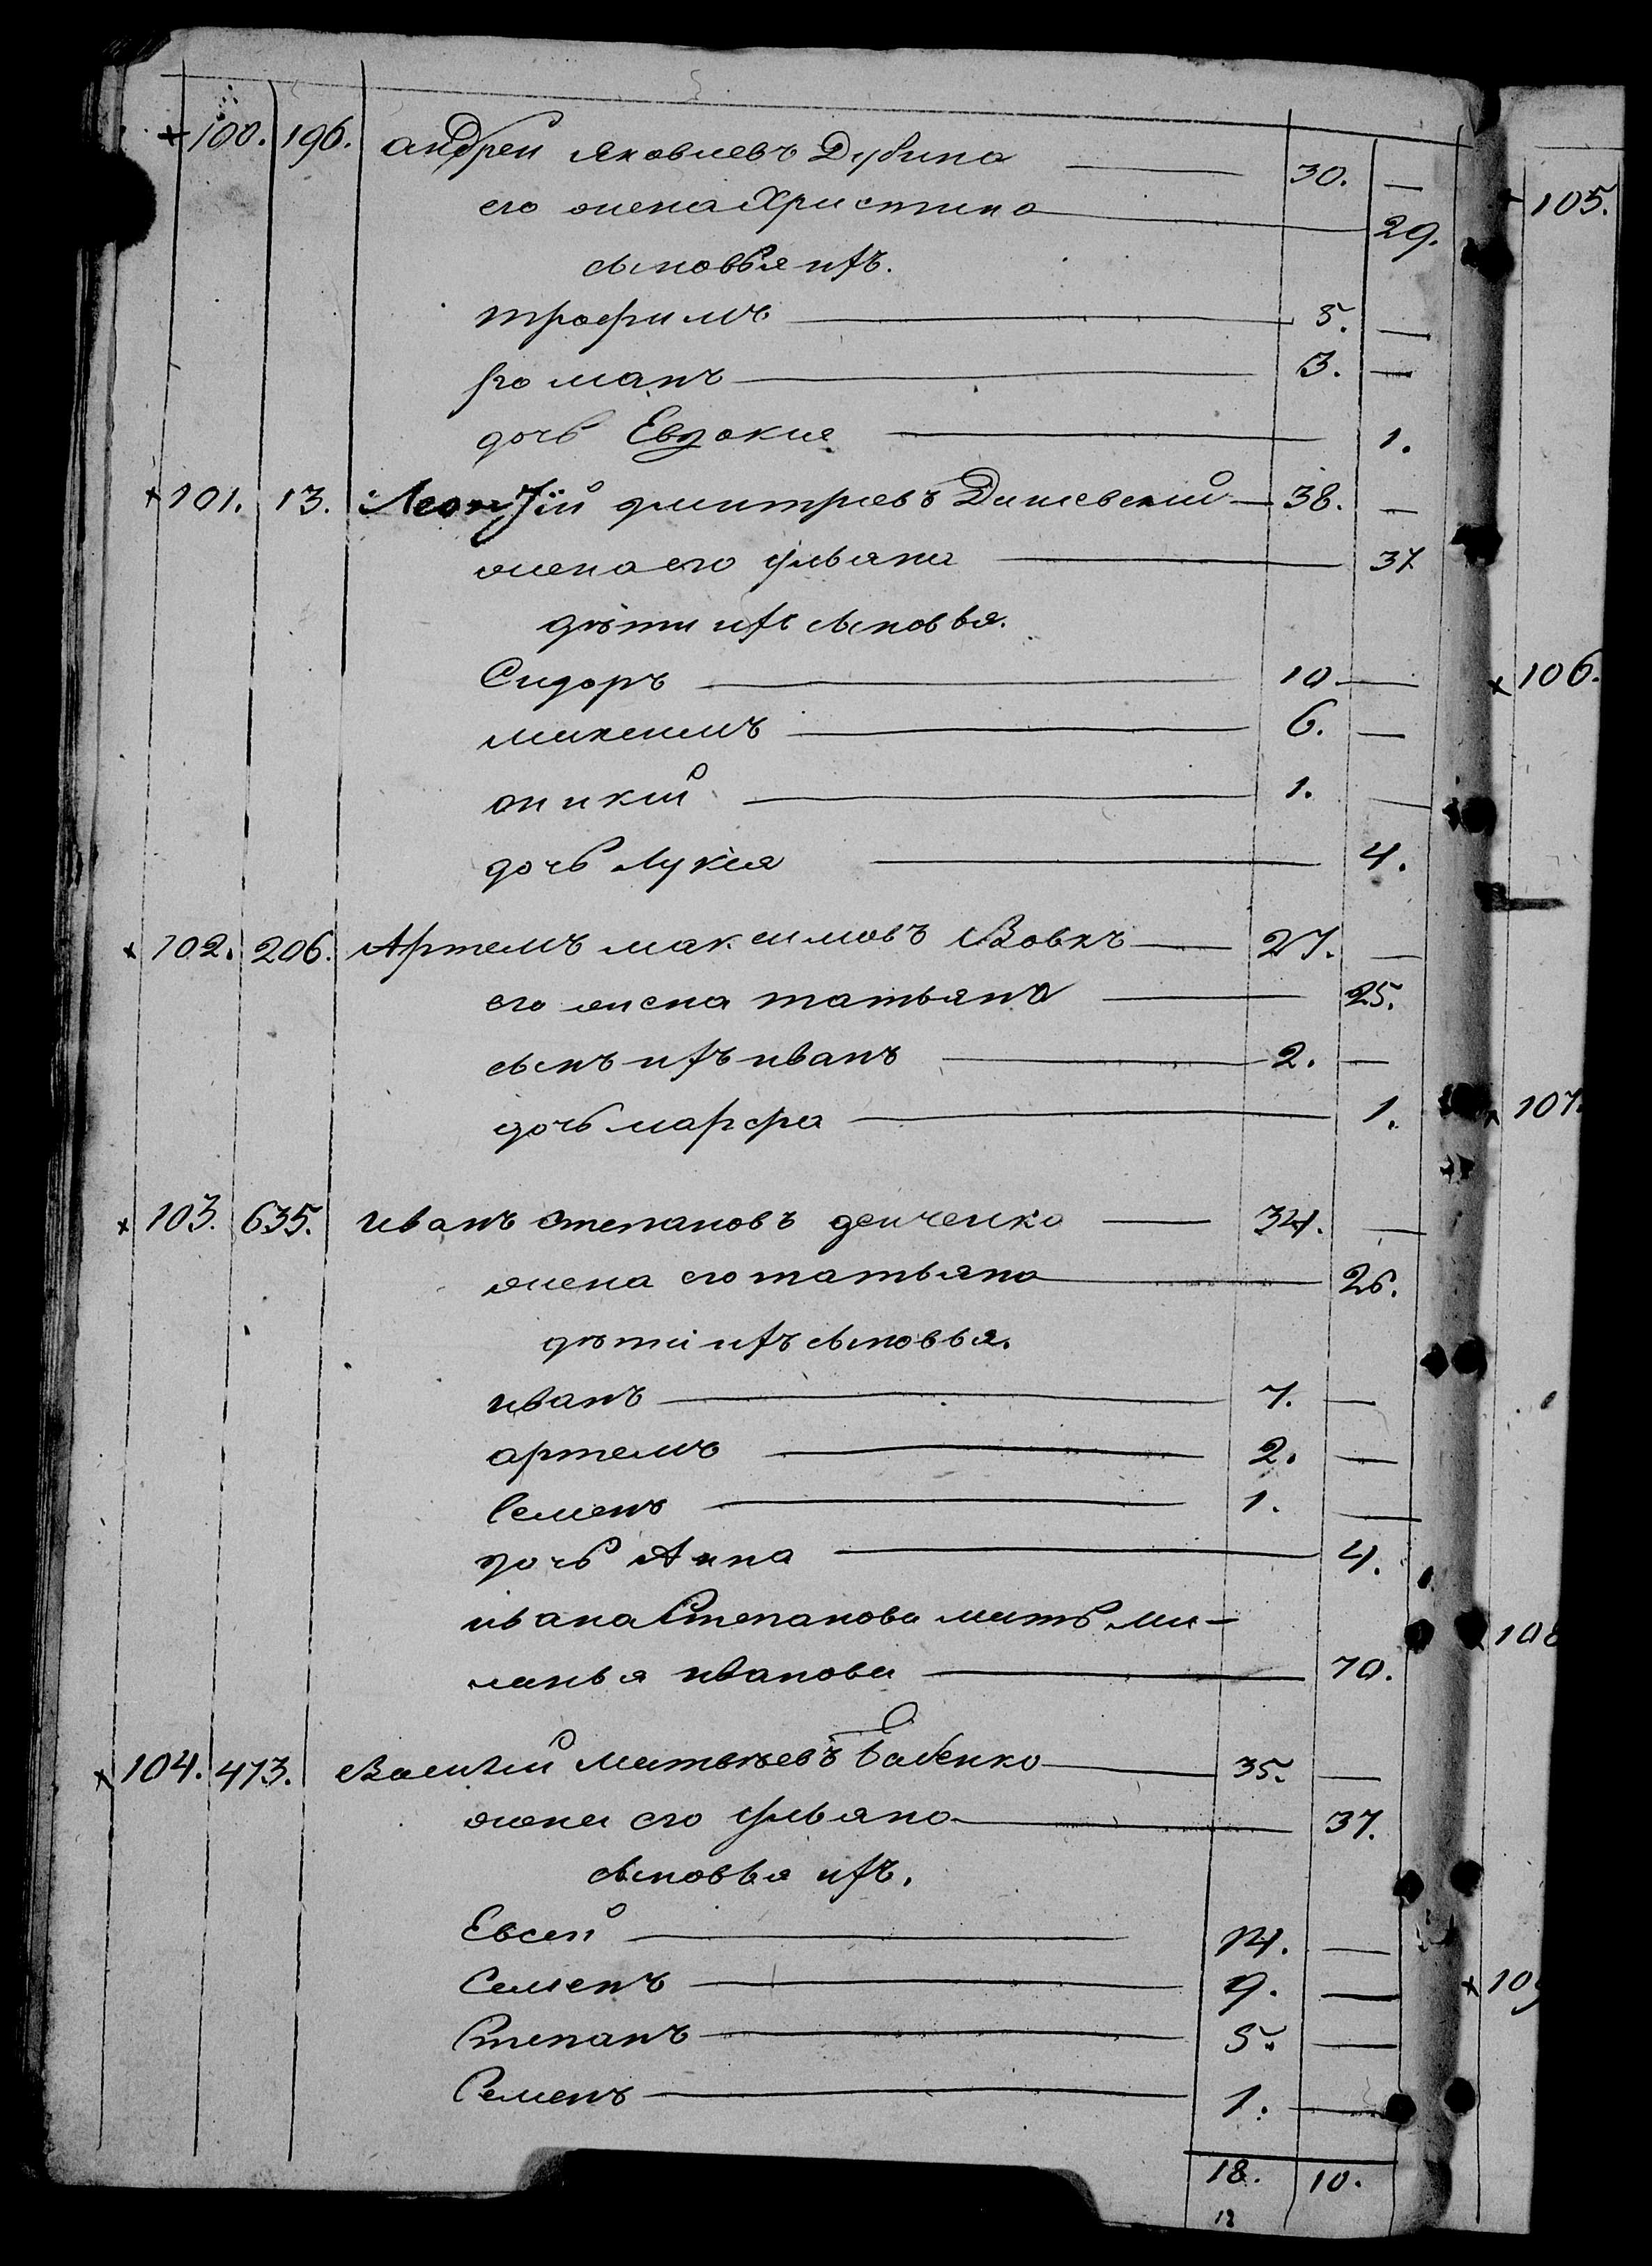 + 100. 196. андрей яковлевъ Дубина — 30. —
его жена Христина — 29.
сыновья ихъ.
трофимъ — 5. —
романъ — 3. —
дочь Евдокия — 1.
+ 101. 13. Леонтій дмитріевъ — 38. —
жена его ульяна — 37
дѣти ихъ сыновья.
Сидоръ — 10 —
— 6. —
— 1. —
дочь Лукія — 4.
+ 102. 206. Артемъ максимовъ Вовкъ — 27. —
его жена татьяна — 25.
сынъ ихъ иванъ — 2. —
дочь марфа — 1.
+ 103. 635. иванъ степановъ демченко — 34. —
жена его татьяна — 26.
дѣти ихъ сыновья.
иванъ — 7. —
артемъ — 2. —
Семенъ — 1. —
дочь Анна — 4.
ивана Степанова мать ма-
ланья иванова — 70.
+ 104. 473. Василій матвѣевъ Бабенко — 35. —
жена его ульяна — 37.
сыновья ихъ.
Евсей — 14. —
Семенъ — 9. —
Степанъ — 5. —
Семенъ — 1. —
18. 10.
12
+ 105.
x 106.
x 107.
108
x 109